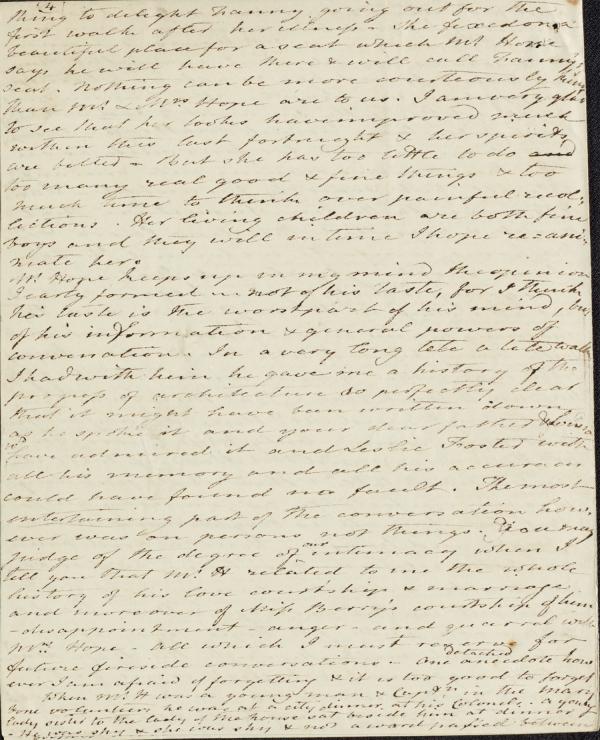 (4
thing to delight Fanny going out for the
first walk after her illness - She fixed on a
beautiful place for a seat which Mr Hope
says he will have there & will call Fanny's
seat. Nothing can be more courteously kind
than Mr & Mrs Hope are to us. I am very glad
to see that her looks have improved much
within this last fortnight & her spirits
are better - But she has too little to do and
too many real good & fine things & too
much time to think over painful recol-
lections. Her living children are both fine
boys and they will in time I hope re-ani-
mate her.
Mr Hope keeps up in my mind the opinion
I early formed - not of his taste, for I think
his taste is the worst part of his mind, but
of his information & general powers of
conversation. In a very long tete a tete walk
I had with him he gave me a history of the
progress of architecture so perfectly clear
that it might have been written down
as he spoke it and your dear father &
have admired it and Leslie Foster with
all his memory and all his accuracy
could have found no fault. The most
entertaining part of the conversation how-
ever was on persons not things. You may
judge of the degree of our intimacy when I
tell you that Mr H related to me the whole
history of his love courtship & marriage
and moreover of Miss Berry's courtship of him
- disappointment - anger - and quarrel with
Mrs Hope - all which I must reserve for
future fireside conversations - one detached anecdote how-
ever I am afraid of forgetting & it is too good to forget
When Mr H was a young man & Captn in the Mary
bone volunteers he was at a city dinner at his Colonels - a young
lady sister to the lady of the house sat beside him at dinner
He was shy & she was shy & not a word passed between